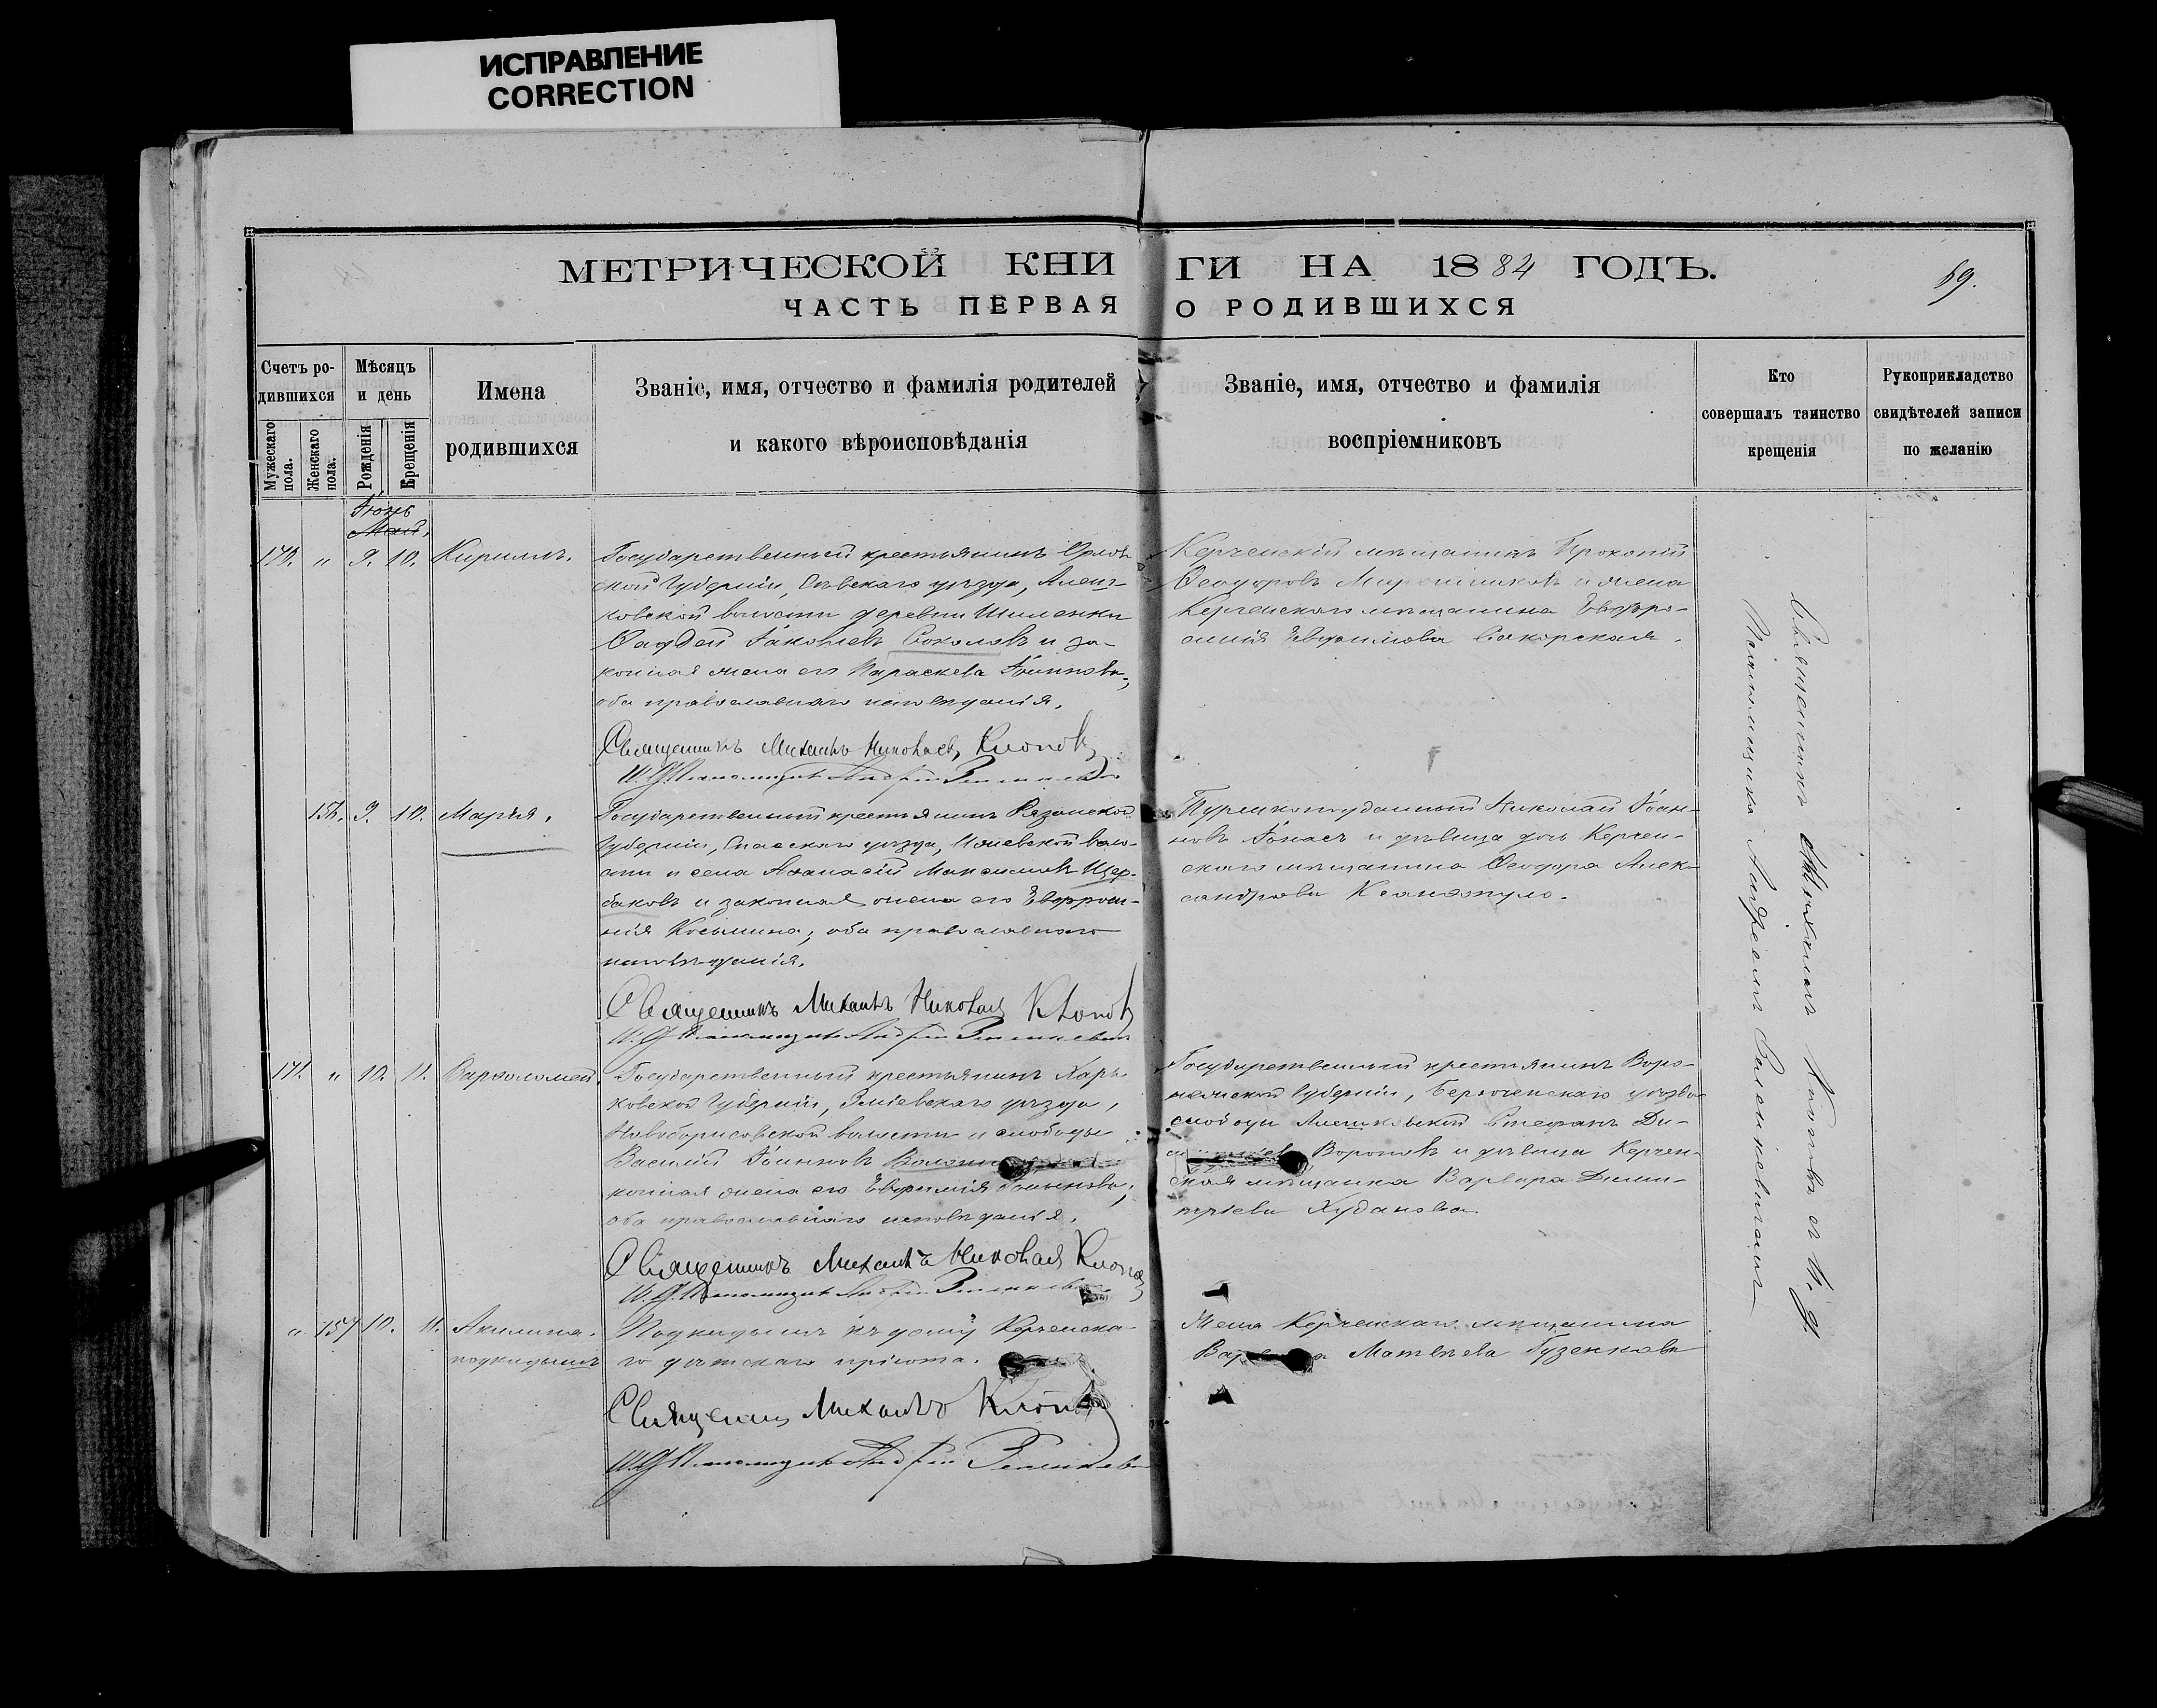 ИСПРАВЛЕНИЕ
CORRECTION
МЕТРИЧЕСКОЙ КНИГИ НА 1884 ГОДЪ.
69.
ЧАСТЬ ПЕРВАЯ О РОДИВШИХСЯ
Счетъ ро-
дившихся
Мужескаго пола.
Женскаго пола.
Мѣсяцъ
и день
Рожденія
Крещенія
Имена
родившихся
Званіе, имя, отчество и фамилія родителей
и какого вѣроисповѣданія
Званіе, имя, отчество и фамилія
воспріемниковъ
Кто
совершалъ таинство
крещенія
Рукоприкладство
свидѣтелей записи
по желанію
Іюнь
Май.
170. " 9. 10. Кириллъ.
Государственный крестьянинъ Орлов-
ской Губерніи, Сѣвскаго уѣзда, Алеш-
ковской волости деревни Шиленки
Ѳаддей Іаковлевъ Соколовъ и за-
конная жена его Параскева Іоаннова;
оба православнаго исповѣданія.
Священникъ Михаилъ Николаевъ Клоповъ
И. Д. Псаломщика Андрей
Керченскій мѣщанинъ Прокопій
Ѳеодоровъ Мирошниковъ и жена
Керченскаго мѣщанина Евфро-
синія Евфимова Сикорская.
156. 9. 10. Марія.
Государственный крестьянинъ Рязанской
Губерніи, Спасскаго уѣзда, Ижевской воло-
сти и села Аѳанасій Максимовъ Щер-
баковъ и законная жена его Евфроси-
нія Косьмина; оба православнаго
исповѣданія.
Священникъ Михаилъ Николаевъ Клоповъ
И. Д. Псаломщика Андрей
Турецкоподданный Николай Іоан-
новъ и дѣвица дочь Керчен-
скаго мѣщанина Ѳеодора Алек-
сандрова Ксанѳопуло.
171. " 10. 11. Варѳоломей.
Государственный крестьянинъ Харь-
ковской Губерніи, Зміевскаго уѣзда,
Новоборисовской волости и слободы
Василій Іоанновъ
конная жена его Евфимія Іоаннова;
оба православнаго исповѣданія.
Священникъ Михаилъ Николаевъ Клоповъ
И. Д. Псаломщика Андрей
Государственный крестьянинъ Воро-
нежской Губерніи, Бирюченскаго уѣзда
слободы Алешковской Стефанъ Ди-
Вороновъ и дѣвица Керчен-
ская мѣщанка Варвара Дими-
тріева Худакова.
" 157 10. 11. Акилина.
подкидышъ
Подкидышъ къ дому Керченска-
го дѣтскаго пріюта.
Священникъ Михаилъ Клоповъ
И. Д. Псаломщика Андрей
Жена Керченскаго мѣщанина
Матвѣева Гузенкова
Священникъ Михаилъ Клоповъ съ И. д.
Псаломщика Андреемъ